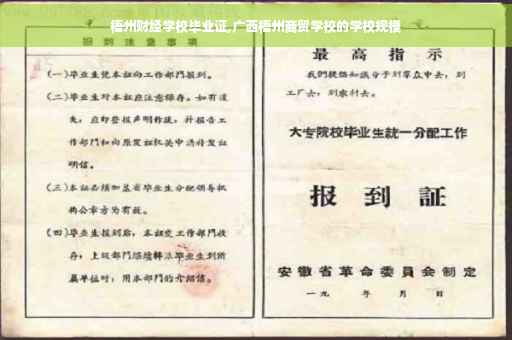 梧州财经学校毕业证,广西梧州商贸学校的学校规模
报到注意事项
(一)毕业生凭本证向工作部门报到。
(二)毕业生对本证应注意保存。如有遗
失,应即登报声明作废,并报告工
作部门和向原发证机关申请补发证
明信。
(三)本证必须加盖省毕业生分配领导机
构公章方为有效。
(四)毕业生报到后,本证交工作部门收
存;上级部门继续转派毕业生到所
属单位时,用本部门的介绍信。
最高指示
我们提倡知识分子到群众中去,到
工厂去,到农村去。
大专院校毕业生统一分配工作
报到证
安徽省革命委员会制定
一九 年 月 日